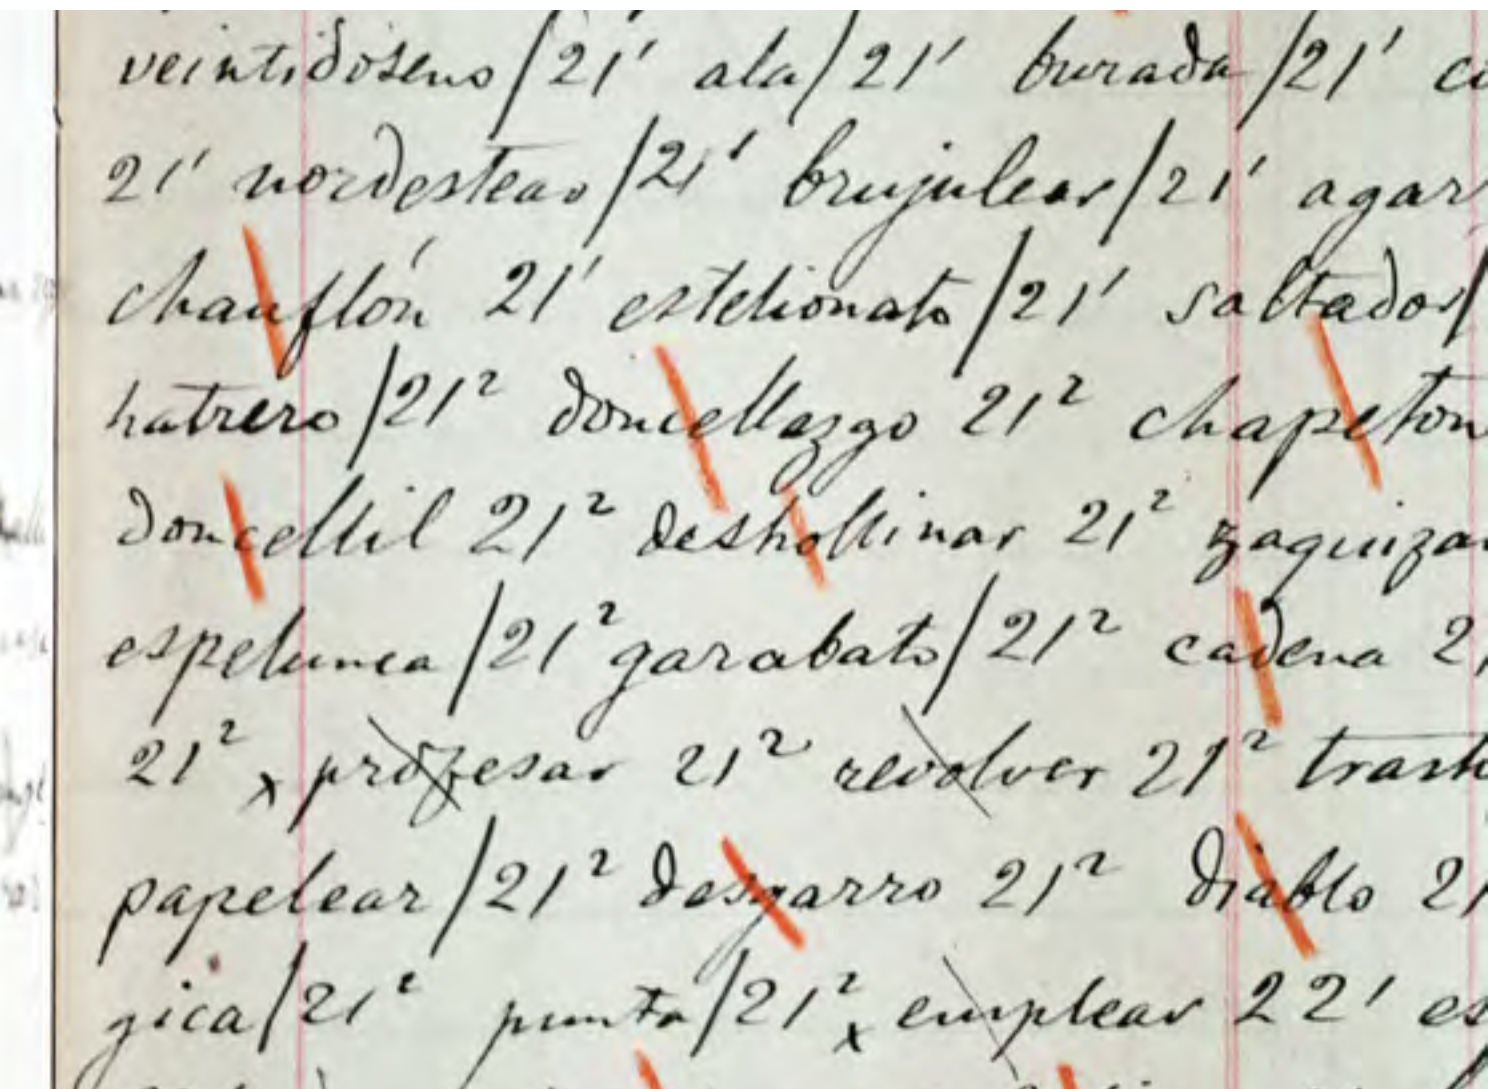 veintidoseno/21¹ ala/21¹ burada/21¹
21¹ nordestear/21¹ brujulear/21¹ agar
chanflón 21¹ estelionato/21¹ saltador/
hatrero/21² doncellazgo 21² chapeton
doncellil 21² deshollinar 21² zaquiza
espelunca/21² garabato/21² cadena 2
21² x profesar 21² revolver 21² trash
papelear/21² desgarro 21² diablo 21
gica/21² punta/21² x emplear 22¹ es